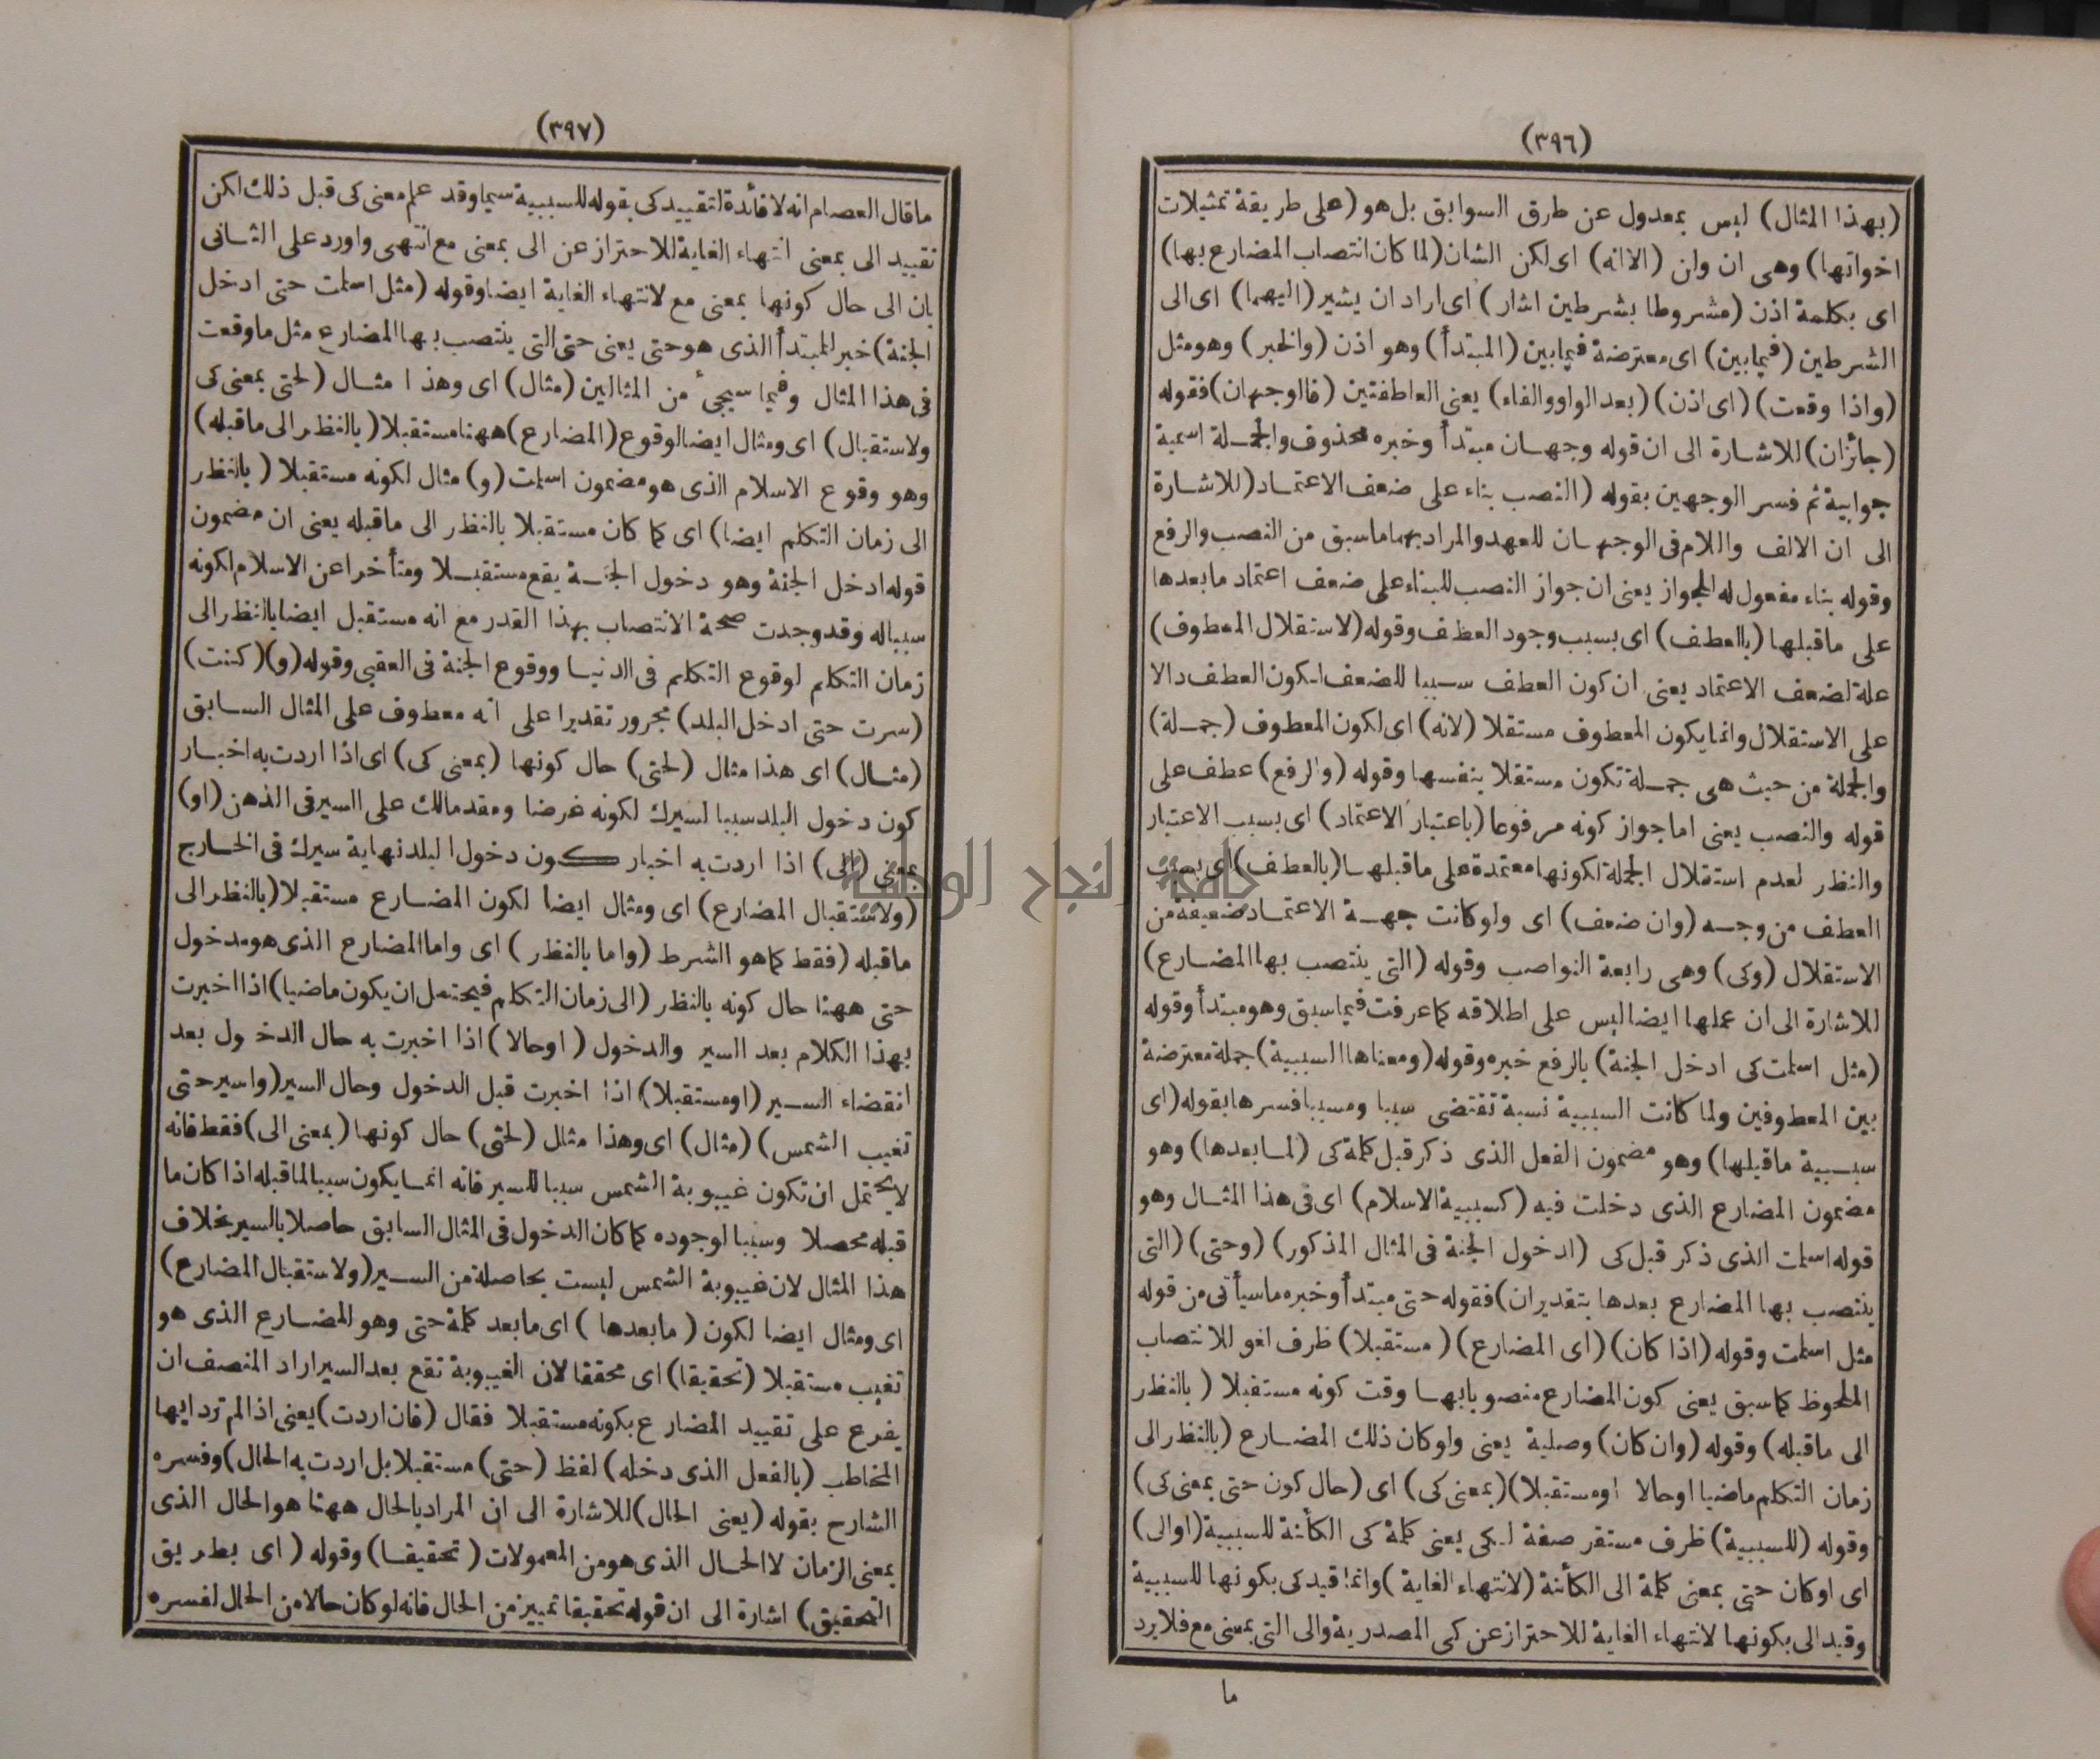 (٣٩٦)
(بهذا المثال) ليس بمعدول عن طرق السوابق بل هو (على طريقة تمثيلات
اخواتها) وهى ان ولن (الا انه) اى لكن الشان (لما كان انتصاب المضارع بها)
اى بكلمة اذن (مشروطا بشرطين اشار) اى اراد ان يشير (اليهما) اى الى
الشرطين (فيما بين) اى معترضة فيما بين (المبتدأ) وهو اذن (والخبر) وهو مثل
(واذا وقعت) (اى اذن) (بعد الواو والفاء) يعنى العاطفتين (فالوجهان) فقوله
(جائزان) للاشارة الى ان قوله وجهان مبتدأ وخبره محذوف والجملة اسمية
جوابية ثم فسر الوجهين بقوله (النصب بناء على ضعف الاعتماد) للاشارة
الى ان الالف واللام فى الوجهان للعهد والمراد بهما ما سبق من النصب والرفع
وقوله بناء مفعول له للجواز يعنى ان جواز النصب للبناء على ضعف اعتماد ما بعدها
على ما قبلها (بالعطف) اى بسبب وجود العطف وقوله (لاستقلال المعطوف)
علة لضعف الاعتماد يعنى ان كون العطف سببا للضعف لكون العطف دالا
على الاستقلال وانما يكون المعطوف مستقلا (لانه) اى لكون المعطوف (جملة)
والجملة من حيث هى جملة تكون مستقلا بنفسها وقوله (والرفع) عطف على
قوله والنصب يعنى اما جواز كونه مرفوعا (باعتبار الاعتماد) اى بسبب الاعتبار
والنظر لعدم استقلال الجملة لكونها معتمدة على ما قبلها (بالعطف) اى بسبب
العطف من وجه (وان ضعف) اى ولو كانت جهة الاعتماد ضعيفة من
الاستقلال (وكى) وهى رابعة النواصب وقوله (التى ينتصب بها المضارع)
للاشارة الى ان عملها ايضا ليس على اطلاقه كما عرفت فيما سبق وهو مبتدأ وقوله
(مثل اسلمت كى ادخل الجنة) بالرفع خبره وقوله (ومعناها السببية) جملة معترضة
بين المعطوفين ولما كانت السببية نسبة تقتضى سببا ومسببا فسرها بقوله (اى
سببية ما قبلها) وهو مضمون الفعل الذى ذكر قبل كلمة كى (لما بعدها) وهو
مضمون المضارع الذى دخلت فيه (كسببية الاسلام) اى فى هذا المثال وهو
قوله اسلمت الذى ذكر قبل كى (لدخول الجنة فى المثال المذكور) (وحتى) (التى
ينتصب بها المضارع بعدها بتقدير ان) فقوله حتى مبتدأ وخبره ما سيأتى من قوله
مثل اسلمت وقوله (اذا كان) (اى المضارع) (مستقبلا) ظرف لغو للانتصاب
الملحوظ كما سبق يعنى كون المضارع منصوبا بها وقت كونه مستقبلا (بالنظر
الى ما قبله) وقوله (وان كان) وصلية يعنى ولو كان ذلك المضارع (بالنظر الى
زمان التكلم ماضيا او حالا او مستقبلا) (بمعنى كى) اى (حال كون حتى بمعنى كى)
وقوله (للسببية) ظرف مستقر صفة لكى يعنى كلمة كى الكائنة للسببية (او الى)
اى او كان حتى بمعنى كلمة الى الكائنة (لانتهاء الغاية) وانما قيد كى بكونها للسببية
وقيد الى بكونها لانتهاء الغاية للاحتراز عن كى المصدرية والى التى بمعنى مع فلا يرد
ما
(٣٩٧)
ما قال العصام انه لا فائدة لتقييد كى بقوله للسببية سيما وقد علم معنى كى قبل ذلك لكن
تقييد الى بمعنى انتهاء الغاية للاحتراز عن الى بمعنى مع انتهى واورد على الثانى
بان الى حال كونها بمعنى مع لانتهاء الغاية ايضا وقوله (مثل اسلمت حتى ادخل
الجنة) خبر المبتدأ الذى هو حتى يعنى حتى التى ينتصب بها المضارع مثل ما وقعت
فى هذا المثال وفيما سيجئ من المثالين (مثال) اى وهذا مثال (لحتى بمعنى كى
ولاستقبال) اى ومثال ايضا لوقوع (المضارع) ههنا مستقبلا (بالنظر الى ما قبله)
وهو وقوع الاسلام الذى هو مضمون اسلمت (و) مثال لكونه مستقبلا (بالنظر
الى زمان التكلم ايضا) اى كما كان مستقبلا بالنظر الى ما قبله يعنى ان مضمون
قوله ادخل الجنة وهو دخول الجنة يقع مستقبلا ومتأخرا عن الاسلام لكونه
سببا له وقد وجدت صحة الانتصاب بهذا القدر مع انه مستقبل ايضا بالنظر الى
زمان التكلم لوقوع التكلم فى الدنيا ووقوع الجنة فى العقبى وقوله (و) (كنت)
(سرت حتى ادخل البلد) مجرور تقديرا على انه معطوف على المثال السابق
(مثال) اى هذا مثال (لحتى) حال كونها (بمعنى كى) اى اذا اردت به اخبار
كون دخول البلد سببا لسيرك لكونه غرضا ومقدما لك على السير فى الذهن (او)
بمعنى (الى) اذا اردت به اخبار كون دخول البلد نهاية سيرك فى الخارج
(ولاستقبال المضارع) اى ومثال ايضا لكون المضارع مستقبلا (بالنظر الى
ما قبله (فقط كما هو الشرط (واما بالنظر) اى واما المضارع الذى هو مدخول
حتى ههنا حال كونه بالنظر (الى زمان التكلم فيحتمل ان يكون ماضيا) اذا اخبرت
بهذا الكلام بعد السير والدخول (او حالا) اذا اخبرت به حال الدخول بعد
انقضاء السير (او مستقبلا) اذا اخبرت قبل الدخول وحال السير (واسير حتى
تغيب الشمس) (مثال) اى وهذا مثال (لحتى) حال كونها (بمعنى الى) فقط فانه
لا يحتمل ان تكون غيبوبة الشمس سببا للسير فانه انما يكون سببا لما قبله اذا كان ما
قبله محصلا وسببا لوجوده كما كان الدخول فى المثال السابق حاصلا بالسير بخلاف
هذا المثال لان غيبوبة الشمس ليست بحاصلة من السير (ولاستقبال المضارع)
اى ومثال ايضا لكون (ما بعدها) اى ما بعد كلمة حتى وهو المضارع الذى هو
تغيب مستقبلا (تحقيقا) اى محققا لان الغيبوبة تقع بعد السير اراد المنصف ان
يفرع على تقييد المضارع بكونه مستقبلا فقال (فان اردت) يعنى اذا لم ترد ايها
المخاطب (بالفعل الذى دخله) لفظ (حتى) مستقبلا بل اردت به الحال) وفسره
الشارح بقوله (يعنى الحال) للاشارة الى ان المراد بالحال ههنا هو الحال الذى
بمعنى الزمان لا الحال الذى هو من المعمولات (تحقيقا) وقوله (اى بطريق
التحقيق) اشارة الى ان قوله تحقيقا تمييز من الحال فانه لو كان حالا من الحال لفسره
جامعة النجاح الوطنية